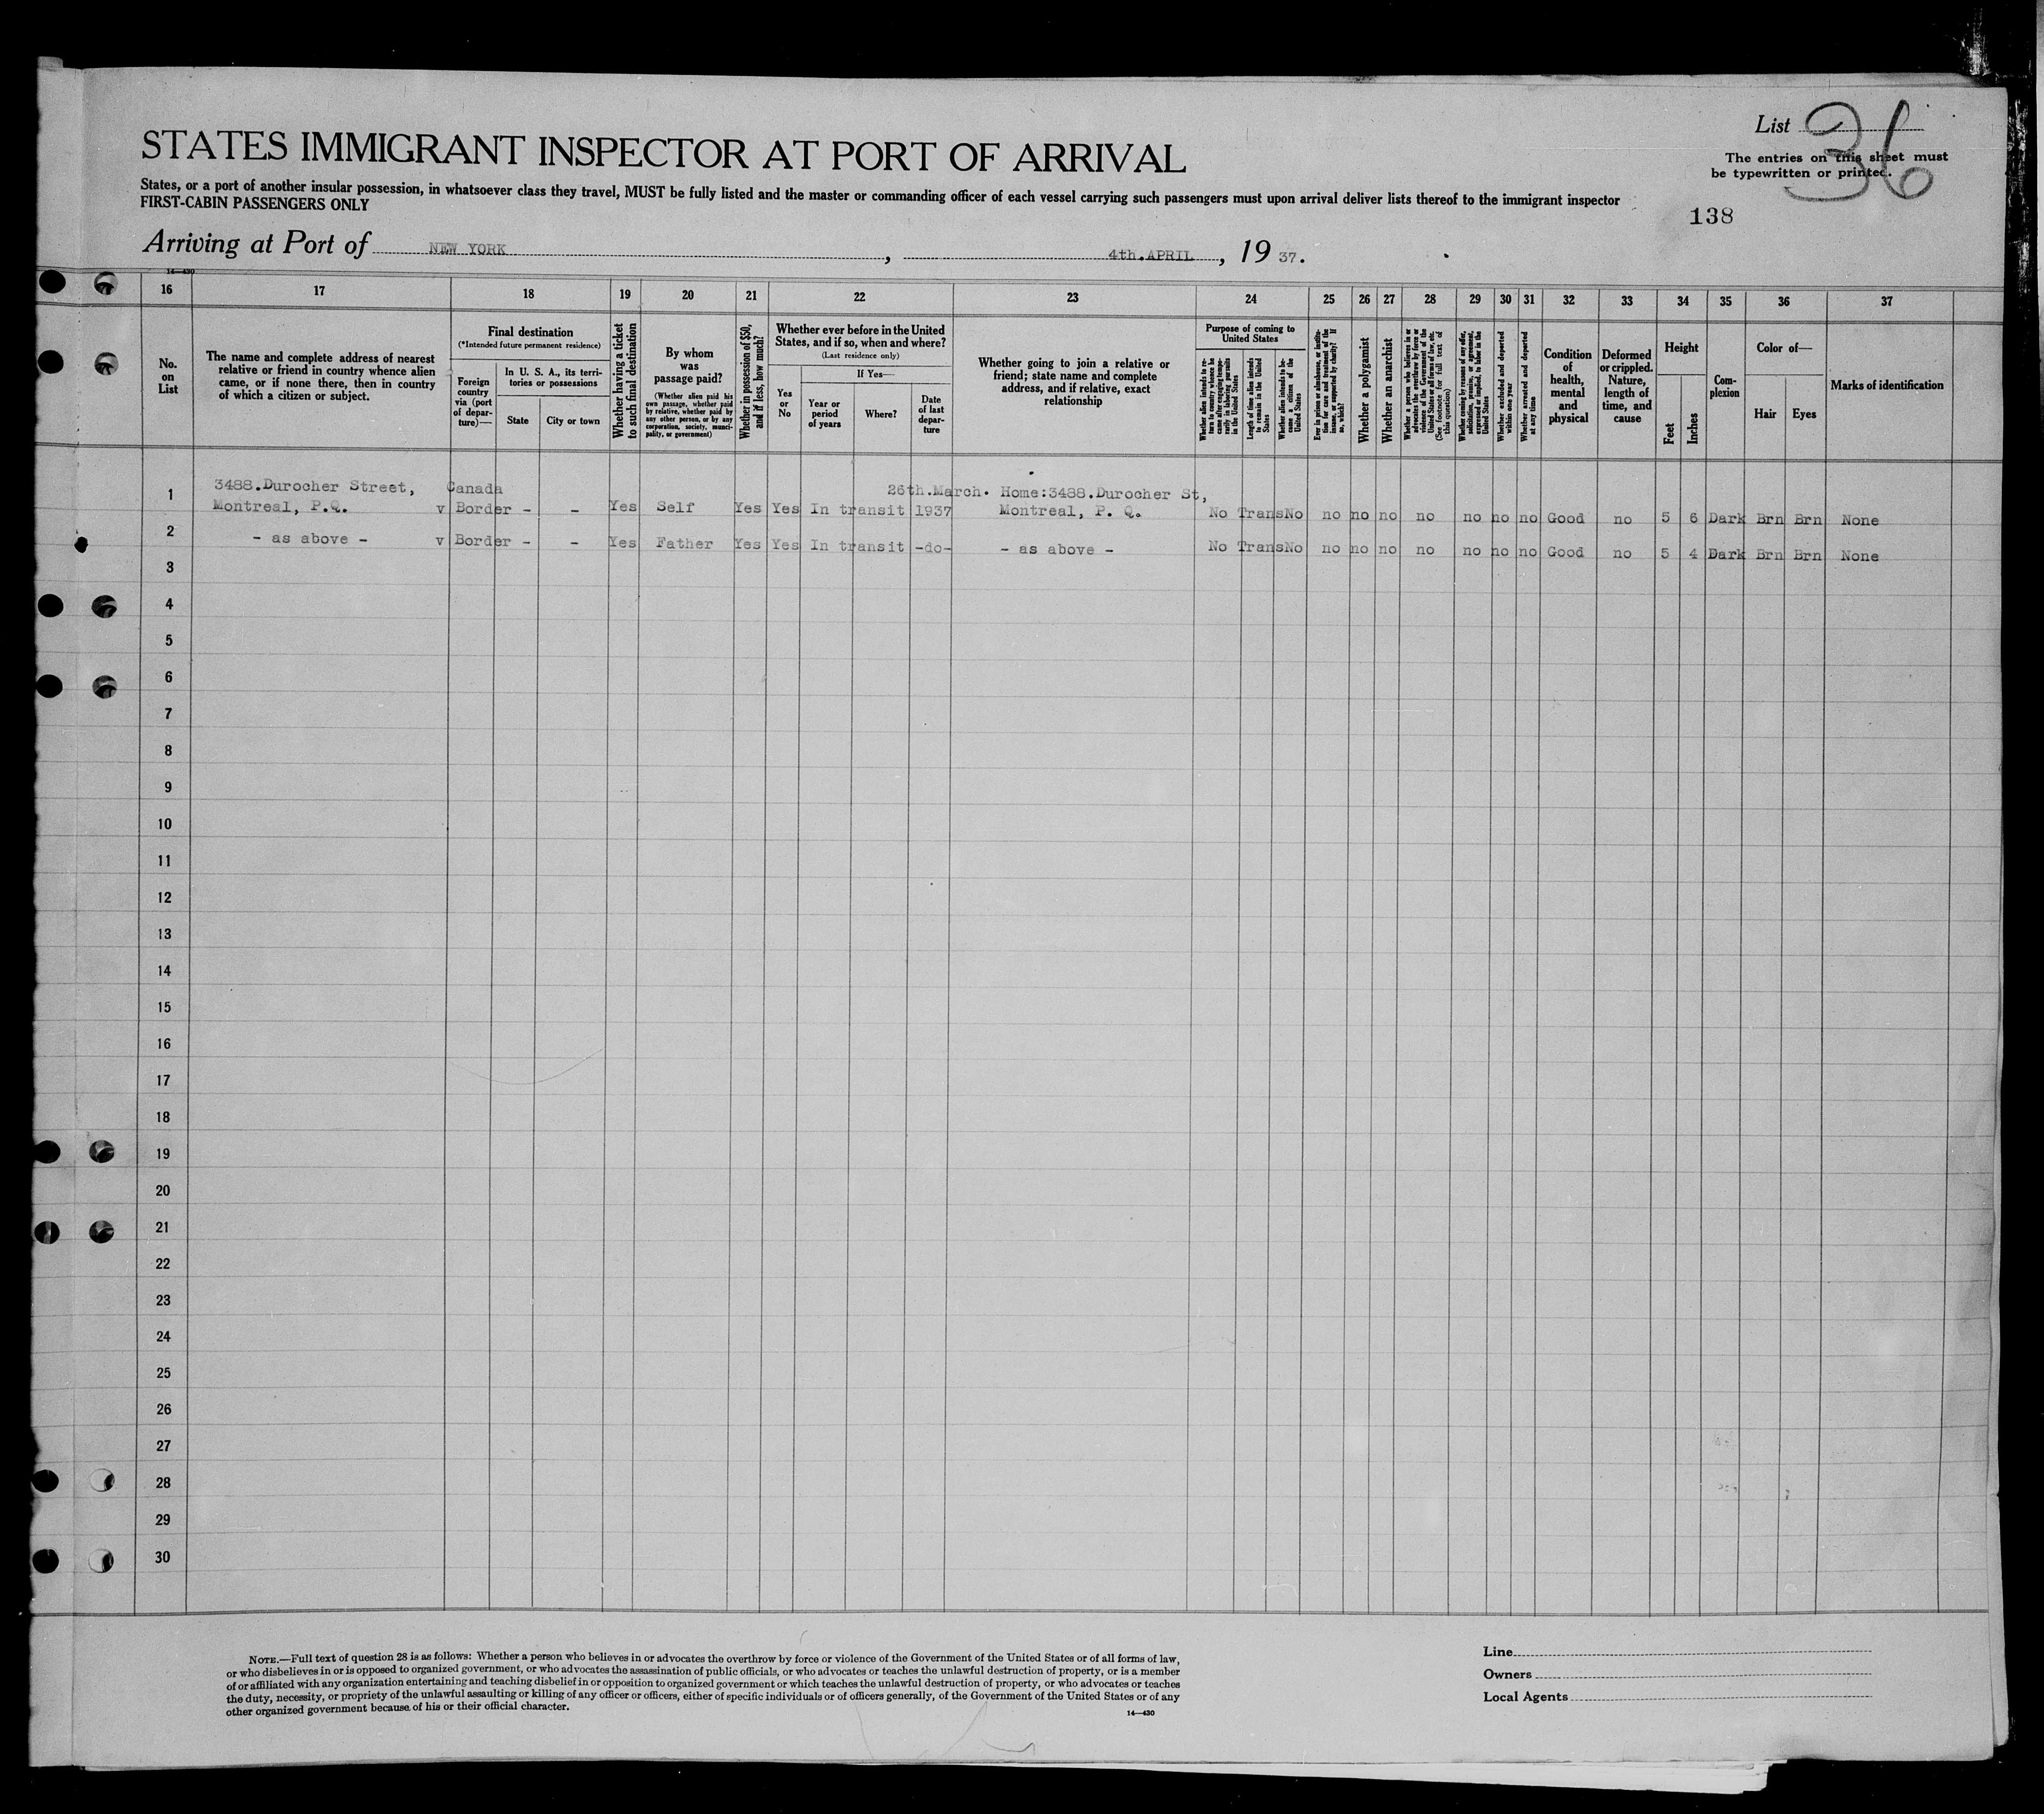 List 36
STATES IMMIGRANT INSPECTOR AT PORT OF ARRIVAL
The entries on this sheet must
be typewritten or printed.
States, or a port of another insular possession, in whatsoever class they travel, MUST be fully listed and the master or commanding officer of each vessel carrying such passengers must upon arrival deliver lists thereof to the immigrant inspector
FIRST-CABIN PASSENGERS ONLY
138
Arriving at Port of NEW YORK, 4th.APRIL, 19 37.
14—430
16 17 18 19 20 21 22 23 24 25 26 27 28 29 30 31 32 33 34 35 36 37
No.
on
List
The name and complete address of nearest
relative or friend in country whence alien
came, or if none there, then in country
of which a citizen or subject.
Final destination
(*Intended future permanent residence)
Foreign
country
via (port
of depar-
ture)—
In U. S. A., its terri-
tories or possessions
State
City or town
Whether having a ticket
to such final destination
By whom
was
passage paid?
(Whether alien paid his
own passage, whether paid
by relative, whether paid by
any other person, or by any
corporation, society, munici-
pality, or government)
Whether in possession of $50,
and if less, how much?
Whether ever before in the United
States, and if so, when and where?
(Last residence only)
Yes
or
No
If Yes—
Year or
period
of years
Where?
Date
of last
depar-
ture
Whether going to join a relative or
friend; state name and complete
address, and if relative, exact
relationship
Purpose of coming to
United States
Whether alien intends to re-
turn to country whence he
came after engaging tempo-
rarily in laboring pursuits
in the United States
Length of time alien intends
to remain in the United
States
Whether alien intends to be-
come a citizen of the
United States
Ever in prison or almshouse, or institu-
tion for care and treatment of the
insane, or supported by charity? If
so, which?
Whether a polygamist
Whether an anarchist
Whether a person who believes in or
advocates the overthrow by force or
violence of the Government of the
United States or all forms of law, etc.
(See footnote for full text of
this question)
Whether coming by reasons of any offer,
solicitation, promise, or agreement,
expressed or implied, to labor in the
United States
Whether excluded and deported
within one year
Whether arrested and deported
at any time
Condition
of
health,
mental
and
physical
Deformed
or crippled.
Nature,
length of
time, and
cause
Height
Feet
Inches
Com-
plexion
Color of—
Hair
Eyes
Marks of identification
3488.Durocher Street, Canada 26th.March. Home:3488.Durocher St,
1 Montreal, P.Q. v Border - - Yes Self Yes Yes In transit 1937 Montreal, P. Q. No Trans No no no no no no no no Good no 5 6 Dark Brn Brn None
2 - as above - v Border - - Yes Father Yes Yes In transit -do- - as above - No Trans No no no no no no no no Good no 5 4 Dark Brn Brn None
3
4
5
6
7
8
9
10
11
12
13
14
15
16
17
18
19
20
21
22
23
24
25
26
27
28
29
30
NOTE.—Full text of question 28 is as follows: Whether a person who believes in or advocates the overthrow by force or violence of the Government of the United States or of all forms of law,
or who disbelieves in or is opposed to organized government, or who advocates the assassination of public officials, or who advocates or teaches the unlawful destruction of property, or is a member
of or affiliated with any organization entertaining and teaching disbelief in or opposition to organized government or which teaches the unlawful destruction of property, or who advocates or teaches
the duty, necessity, or propriety of the unlawful assaulting or killing of any officer or officers, either of specific individuals or of officers generally, of the Government of the United States or of any
other organized government because of his or their official character.
14—430
Line
Owners
Local Agents